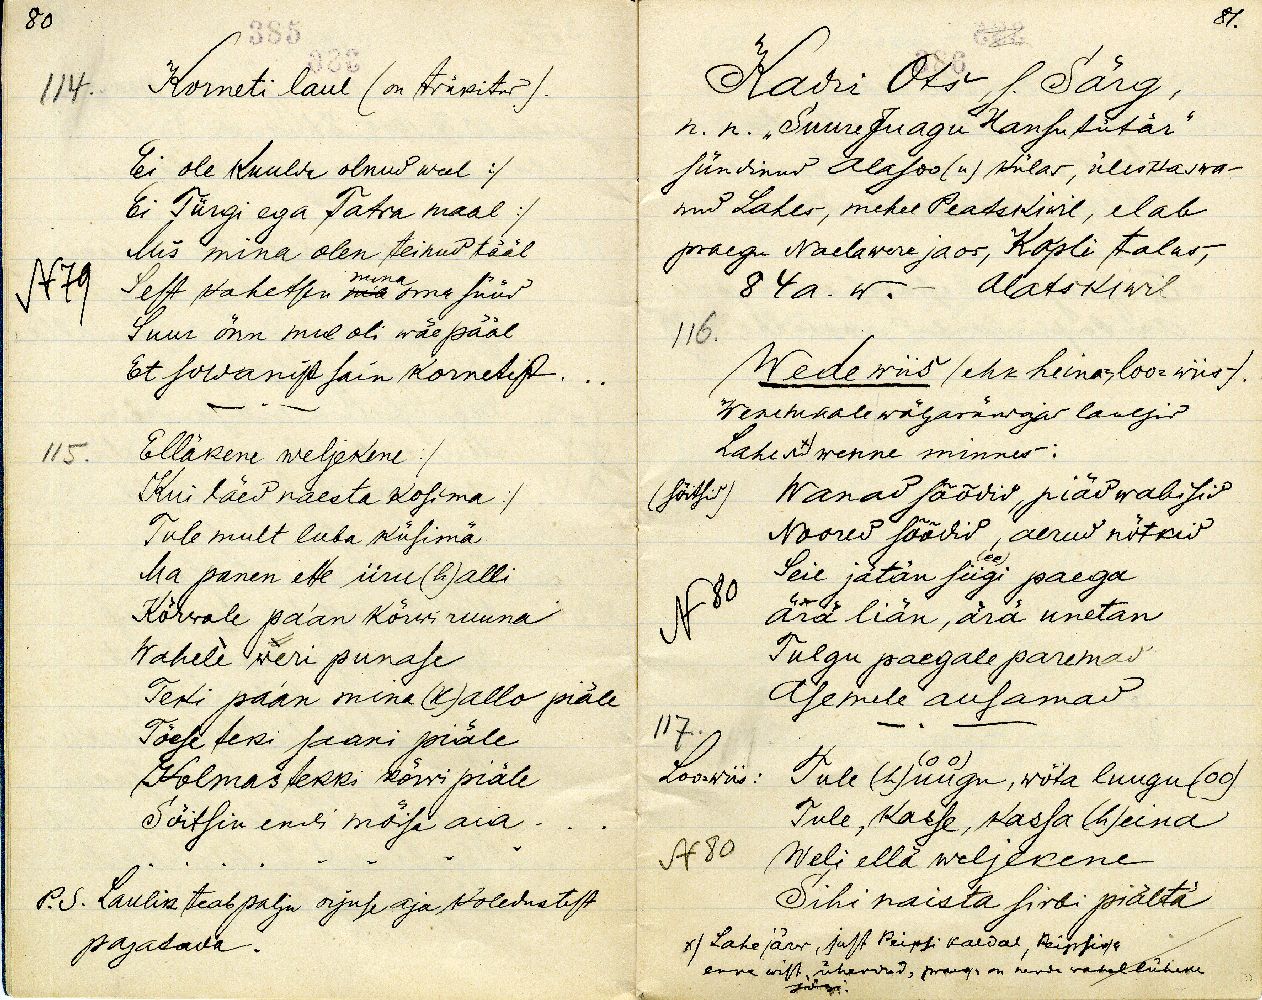 80
385
386
114. Korneti laul (on trükitud).
Ei ole kuulda olnud weel :/
Ei Türgi ega Tatra maal :/
Mis mina olen teinud tääl
N 79
Sest kahetsen ma mina oma süüd
Suur õnn mul oli wäe pääl
Et sowanist sain kornetist . . .
115. Elläkene weljekene :/
Kui läed naesta kosima :/
Tule mult luba küsimä
Ma panen ette iiru (h)alli
Kõrwale pään kõrwi ruuna
Wahele weri punase
Teki pään mina (k)allo piäle
Tõese teki saani piäle
Kolmas tekki kõrwi piäle
Sõitsin endi mõisa aia . . .
P.S. Laulik teab palju orjuse aja koledustest
pajatada.
81.
386
Kadri Ots, s. Särg,
n. n. „Suure Juagu Hansu tütär"
sündinud Alasoo(u) külas, üleskaswa-
nud Lahes, mehel Peatskiwil, elab
praegu Naelawere jaos, Kopli talus,
84 a. w. — Alatskiwil
116.
Wede wiis (ehk heina, loo= wiis).
Wenemaale wäljarändajad laulsid
Lahest x) wenne minnes:
(sõitsid) Wanad sõõdid, piäd wabisid
Noored sõõdid, aerud nõtkid
Seie jätän siigi (ee) paega
N 80
ärä liän, ärä unetan
Tulgu paegale paremad
Asemele ausamad
117.
Loo=wiis: Tule (h)uugu (oo), wõta luugu (oo)
Tule, kasse, kassa (h)eina
N 80
Weli ellä weljekene
Sihi naista sirbi piältä
x) Lahe järw, just Peipsi kaldal, Peipsiga
enne wist ühendud, praegu on nende wahel lühike